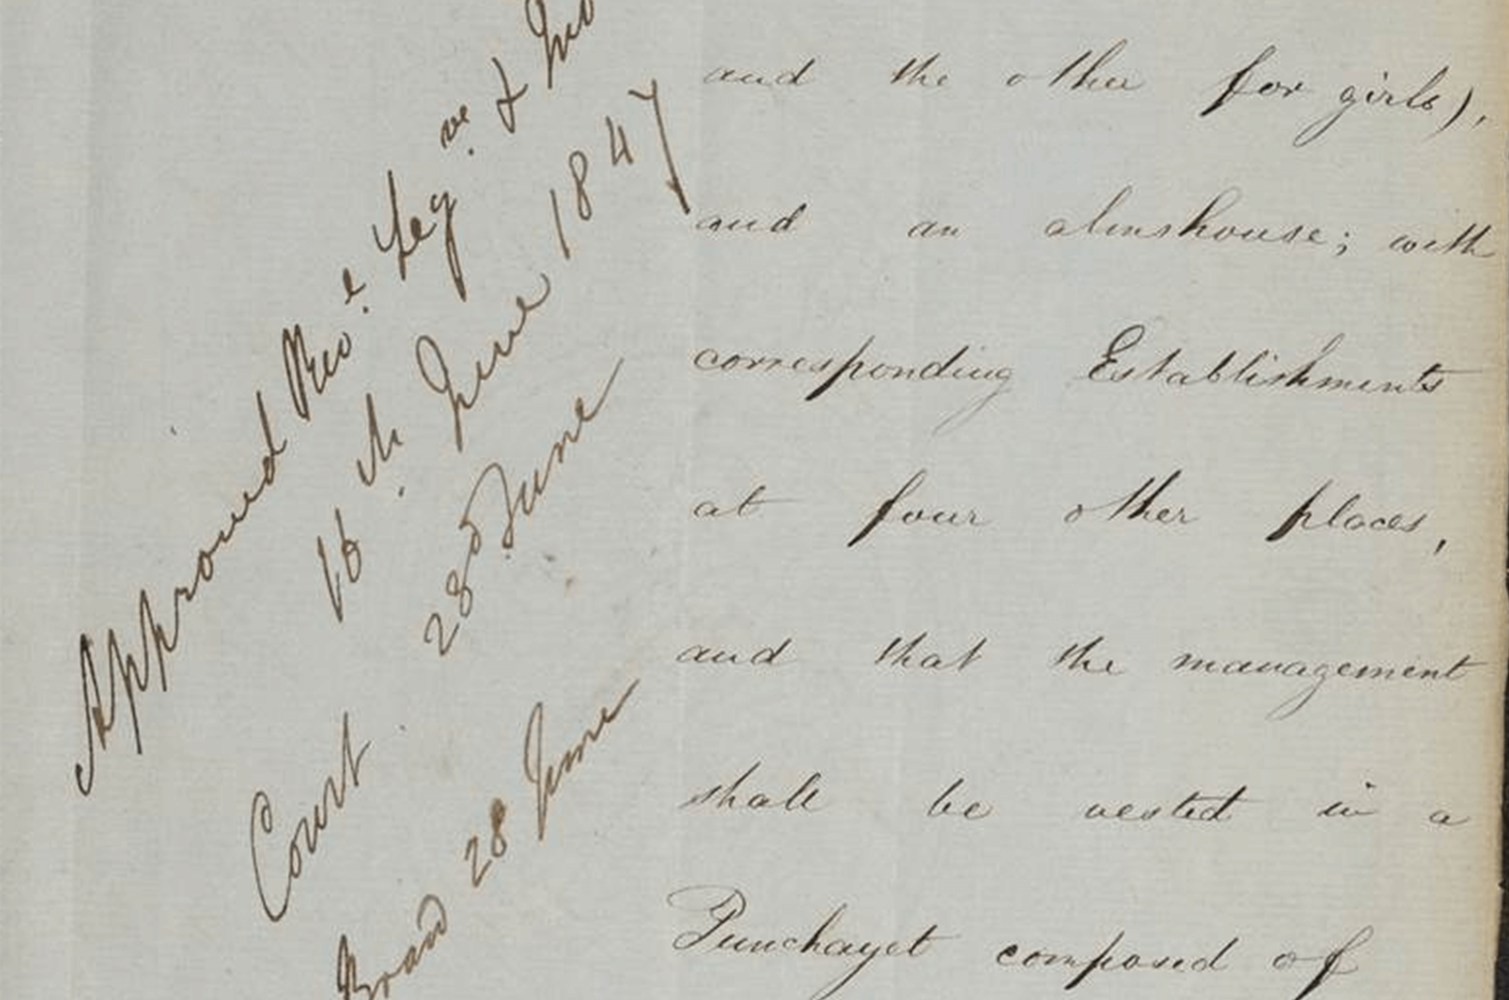 Approved Rev.e Leg.ve & Jud
16 June 1847
Court 23d June
Board 28 June
and the other for girls),
and an almshouse; with
corresponding Establishments
at four other places,
and that the management
shall be vested in a
Punchayet composed of